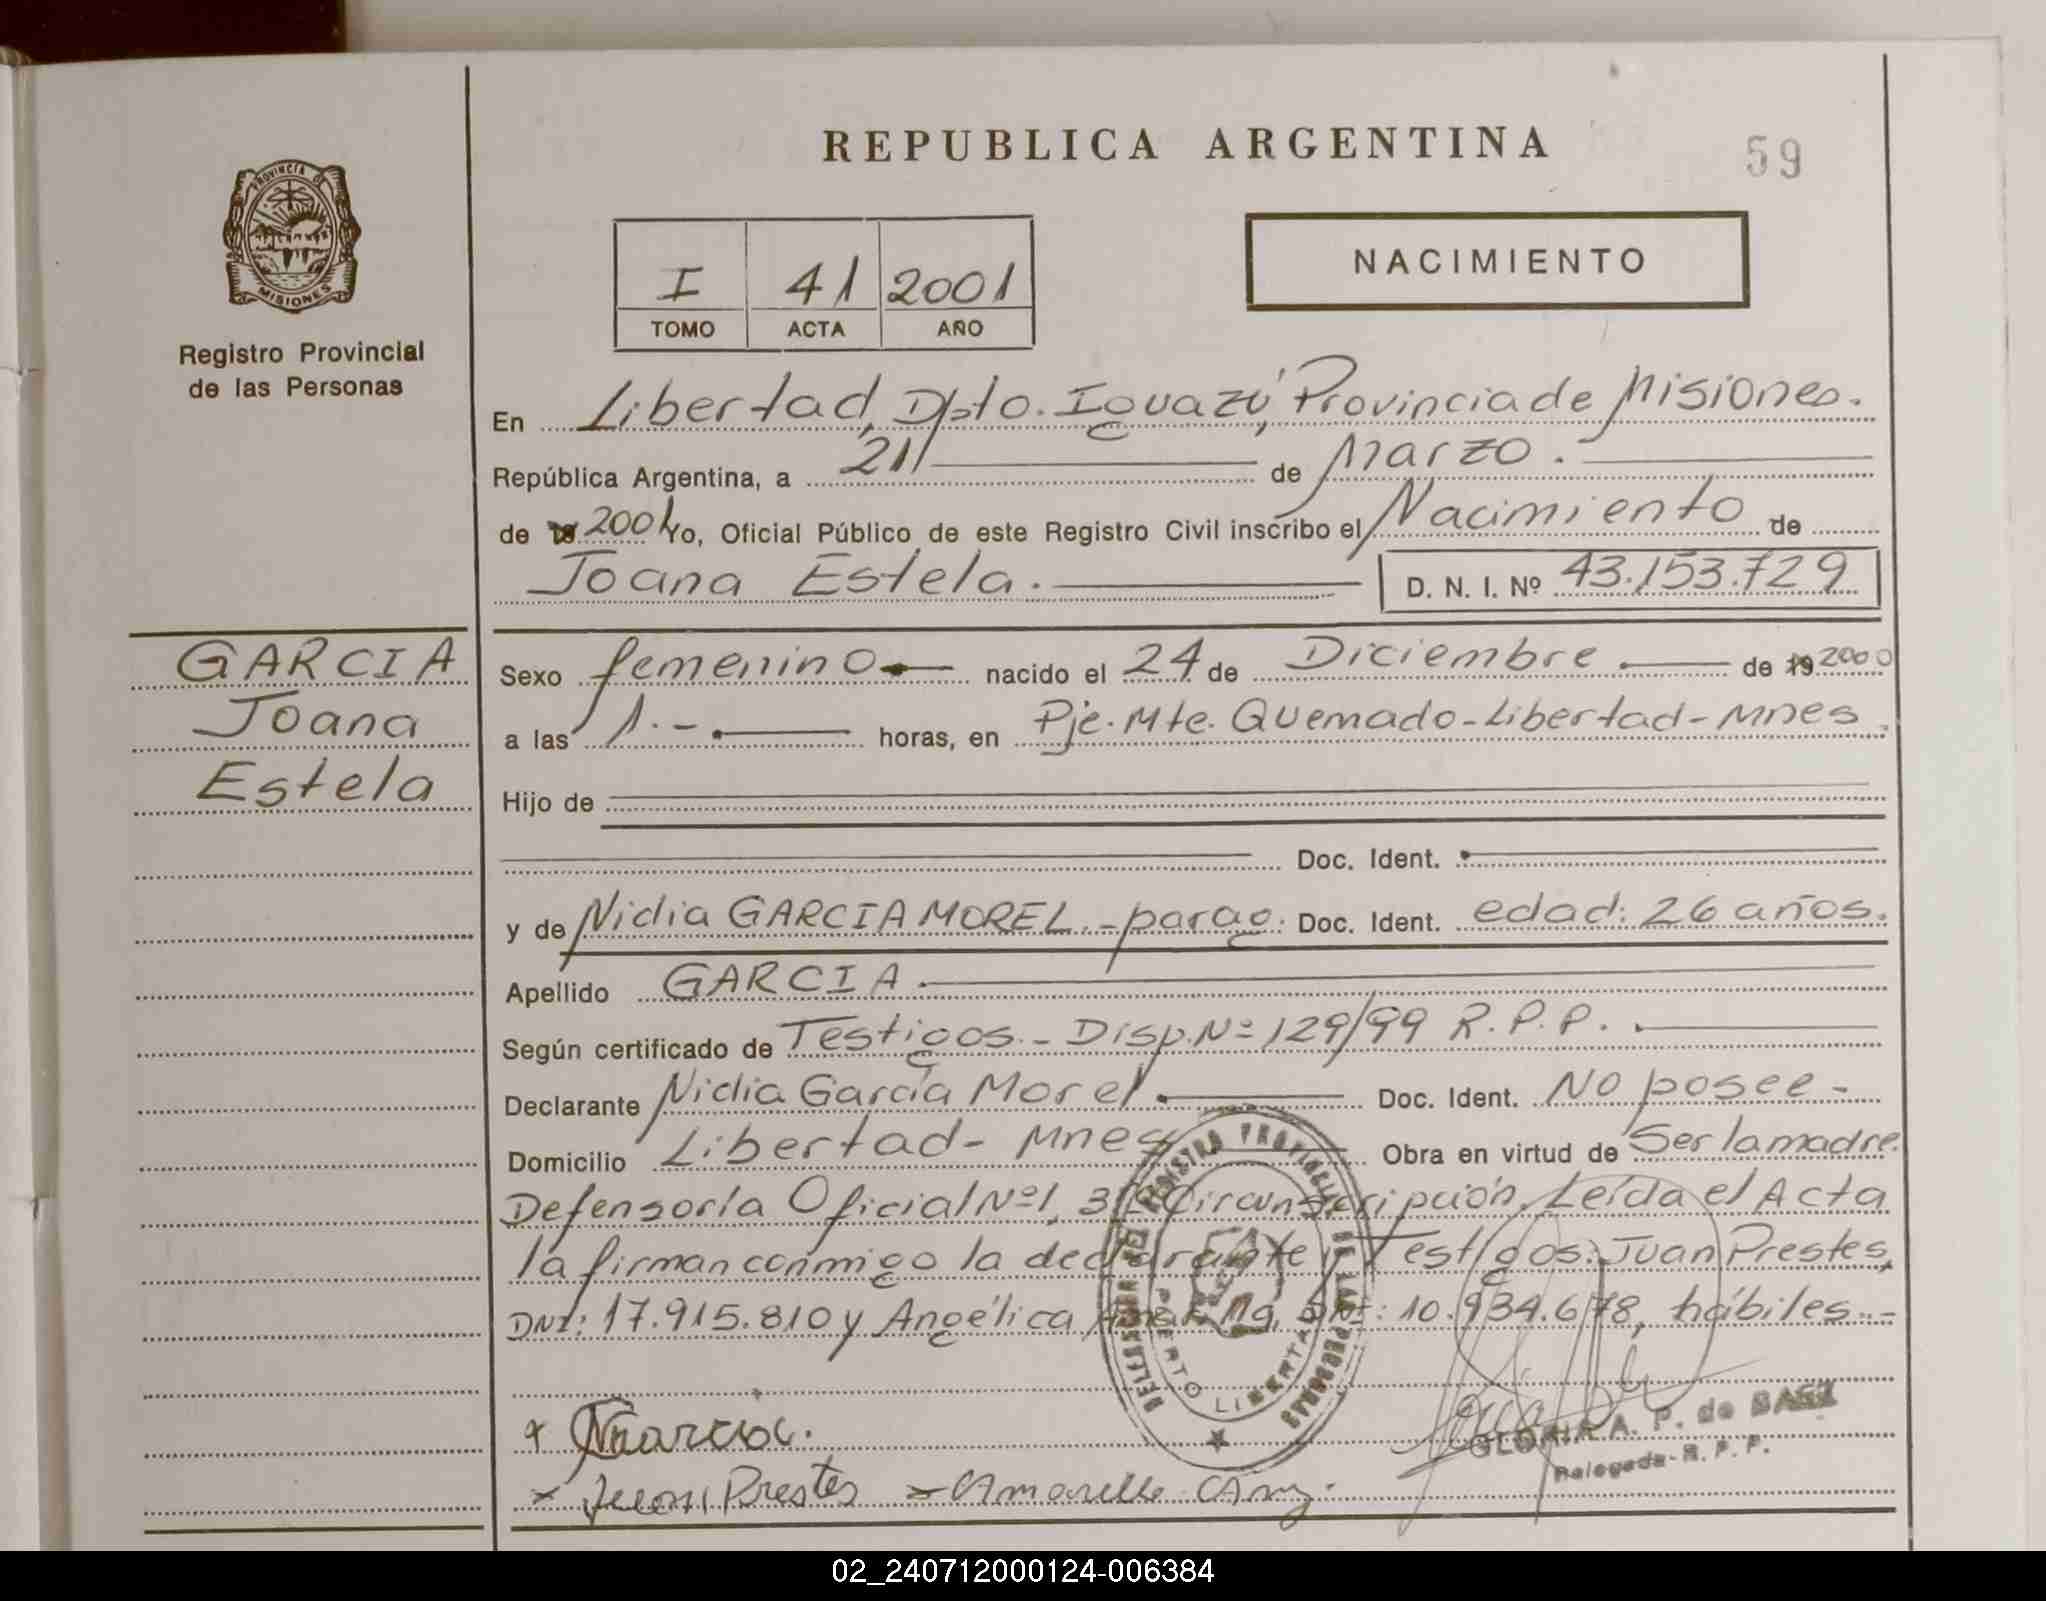 REPUBLICA ARGENTINA
59
PROVINCIA DE
MISIONES
Registro Provincial
de las Personas
I 41 2001
TOMO ACTA AÑO
NACIMIENTO
En Libertad, Dpto. Iguazú, Provincia de Misiones.
República Argentina, a 21 de Marzo.
de 2001 Yo, Oficial Público de este Registro Civil inscribo el Nacimiento de
Joana Estela. D. N. I. Nº 43.153.729
GARCIA
Joana
Estela
Sexo femenino nacido el 24 de Diciembre de 19 2000
a las 1.- horas, en Pje. Mte. Quemado-Libertad-Mnes.
Hijo de
Doc. Ident.
y de Nidia GARCIA MOREL.-parag. Doc. Ident. edad: 26 años.
Apellido GARCIA
Según certificado de Testigos.- Disp. Nº 129/99 R.P.P.
Declarante Nidia García Morel Doc. Ident. No posee-
Domicilio Libertad- Mnes Obra en virtud de Ser la madre.
Defensoría Oficial Nº1, 3º Circunscripción. Leída el Acta
la firman conmigo la declarante y Testigos: Juan Prestes,
DNI: 17.915.810 y Angélica DNI: 10.934.678, hábiles.-
REGISTRO PROVINCIAL DE LAS PERSONAS
PUERTO LIBERTAD
x
x Juan Prestes
GLORIA A. P. de BAEZ
Delegada-R. P. P.
02_240712000124-006384